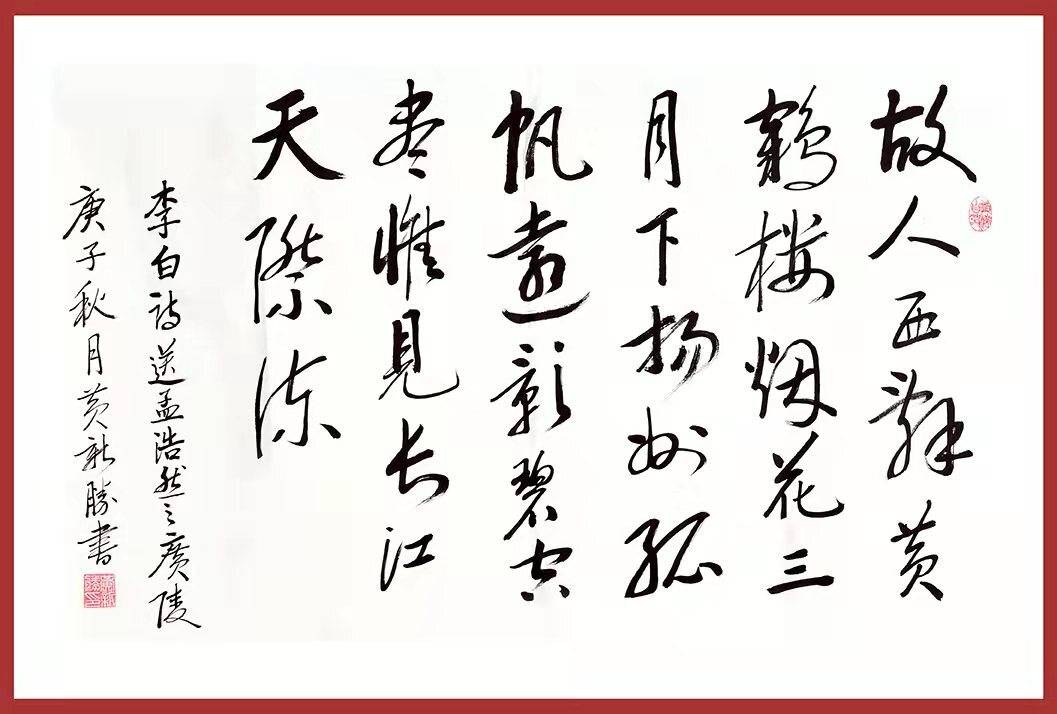 故人西辭黄
鶴楼烟花三
月下扬州孤
帆遠影碧空
尽惟見长江
天際流
李白诗送孟浩然之廣陵
庚子秋月黄新勝書